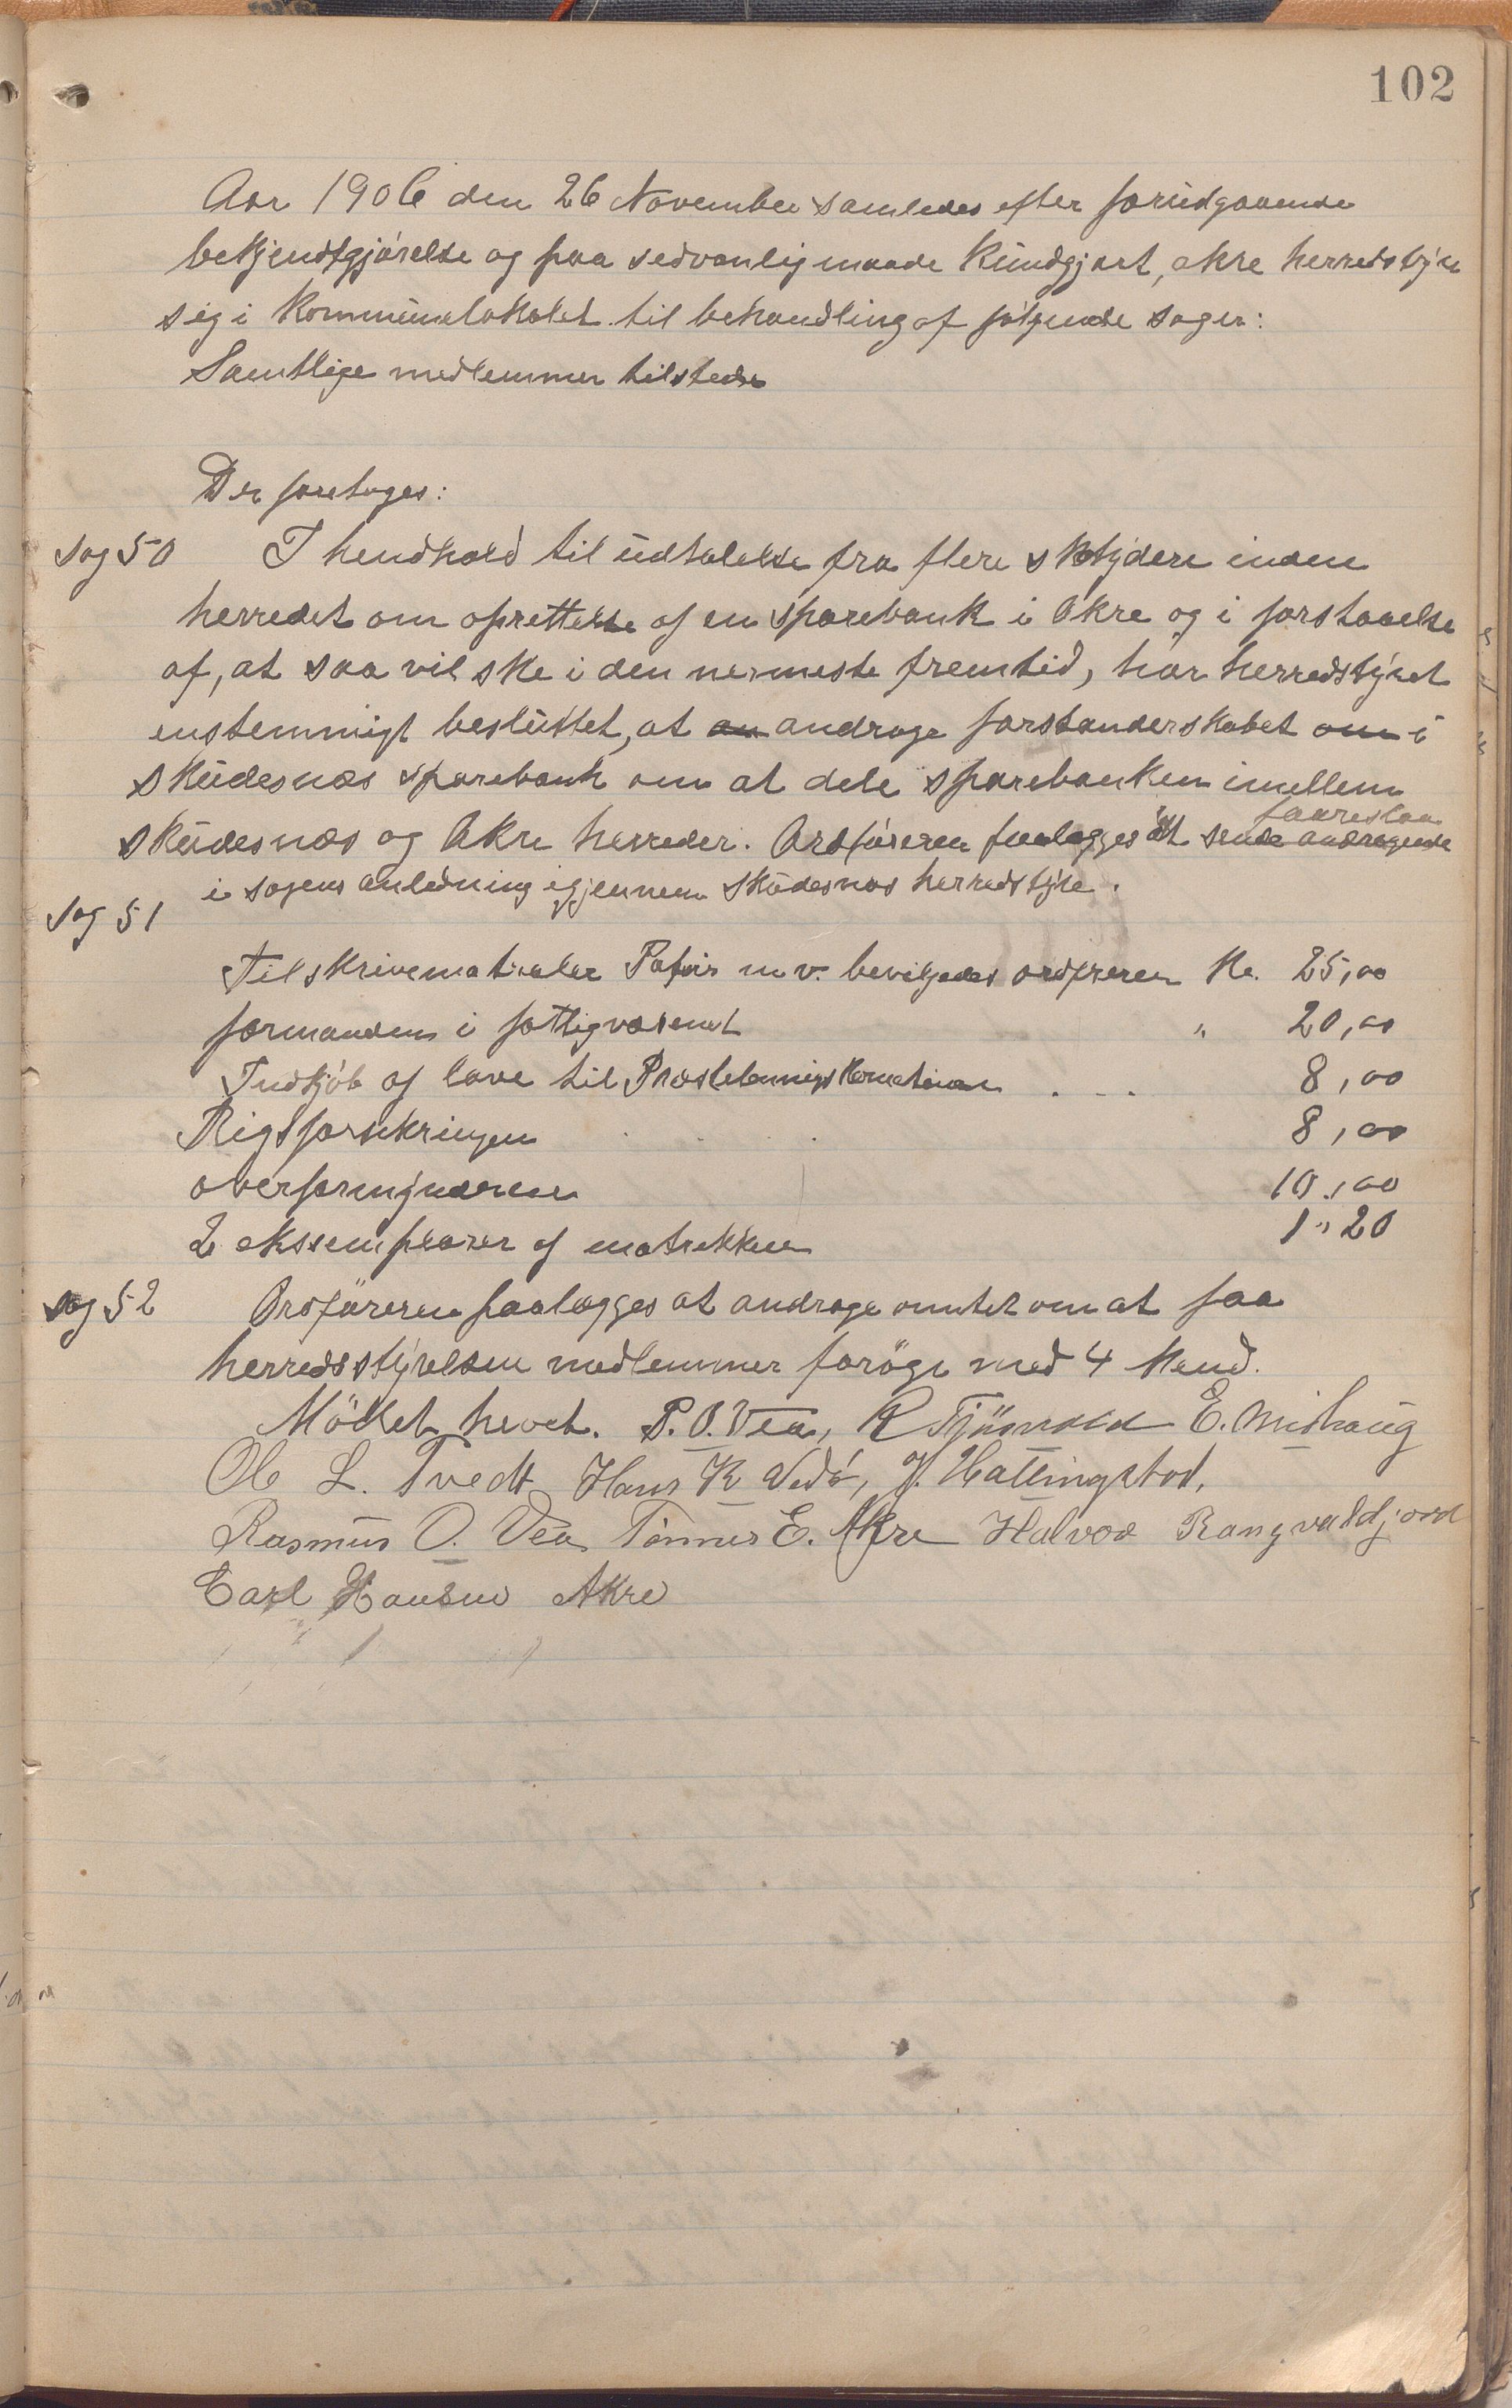 102
Aar 1906 den 26 November samledes efter forudgaaende
bekjendtgjørelse og paa sedvanlig maade kundgjort, akre herredstyre
sig i kommunelokalet til behandling af følgende sager:
Samtlige medlemmer tilstede
Der foretages:
sag 50 I hendhold til udtalelse fra flere skatydere inden
herredet om oprettelse af en sparebank i Akre og i forstaaelse
af, at saa vil ske i den nermeste fremtid, har herredstyret
enstemmigt besluttet, at an andrage forstanderskabet om i
skudesnæs sparebank om at dele sparebanken imellem
foreslaa
skudesnæs og Akre herreder. Ordføreren paalegges at sende andragende
i sagens anledning igjennem skudesnæs herredstyre.
sag 51
Til skrivematrialer Papir m v. bevilgedes ordføreren Kr. 25,00
formanden i fattigvæsenet " 20,00
Indkjøb af love til 8,00
Rigsforsikringen 8,00
overformynderen 10,00
2 eksemplarer af matrikkelen 1,20
sag 52 Ordføreren paalægges at andrage amtet om at faa
herredsstyrelsen medlemmer forøge med 4 Mend.
Mödet hevet. P. O. Vea, R E. Mishaug
Ole L. Tvedt Hans K Vedø, J. Hattingstad,
Rasmus O. Vea Tønnes E. Akre Halvor Rangvaldjord
Carl Hansen Akre